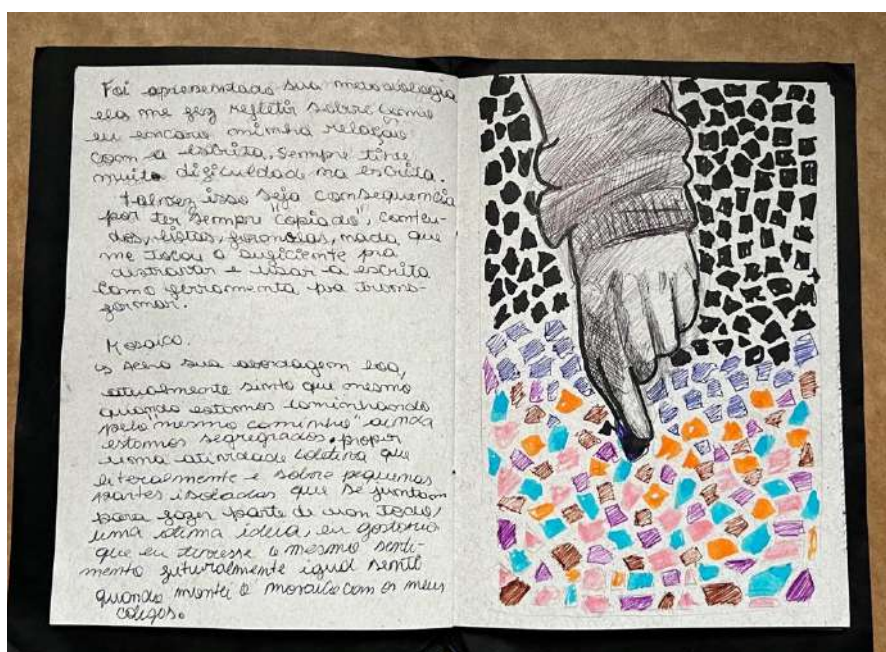 Foi apresentado sua metodologia
ela me fez refletir sobre como
eu encaro minha relação
com a escrita, sempre tive
muita dificuldade na escrita.
talvez isso seja consequencia
por ter sempre "copiado", conteu-
dos, listas, formolas, nada que
me tocou o suficiente pra
distravar e usar a escrita
como ferramenta pra trans-
formar.
Mosaico.
↳ Acho sua abordagem boa,
atualmente sinto que mesmo
quando estamos caminhando
pelo "mesmo caminho" ainda
estamos segregados. propor
uma atividade coletiva que
literalmente e sobre pequenas
partes isoladas que se juntam
para fazer parte de um todo,
uma otima ideia, eu gostaria
que eu tivesse o mesmo senti-
mento futuralmente igual senti
quando montei o mosaico com os meus
colegas.